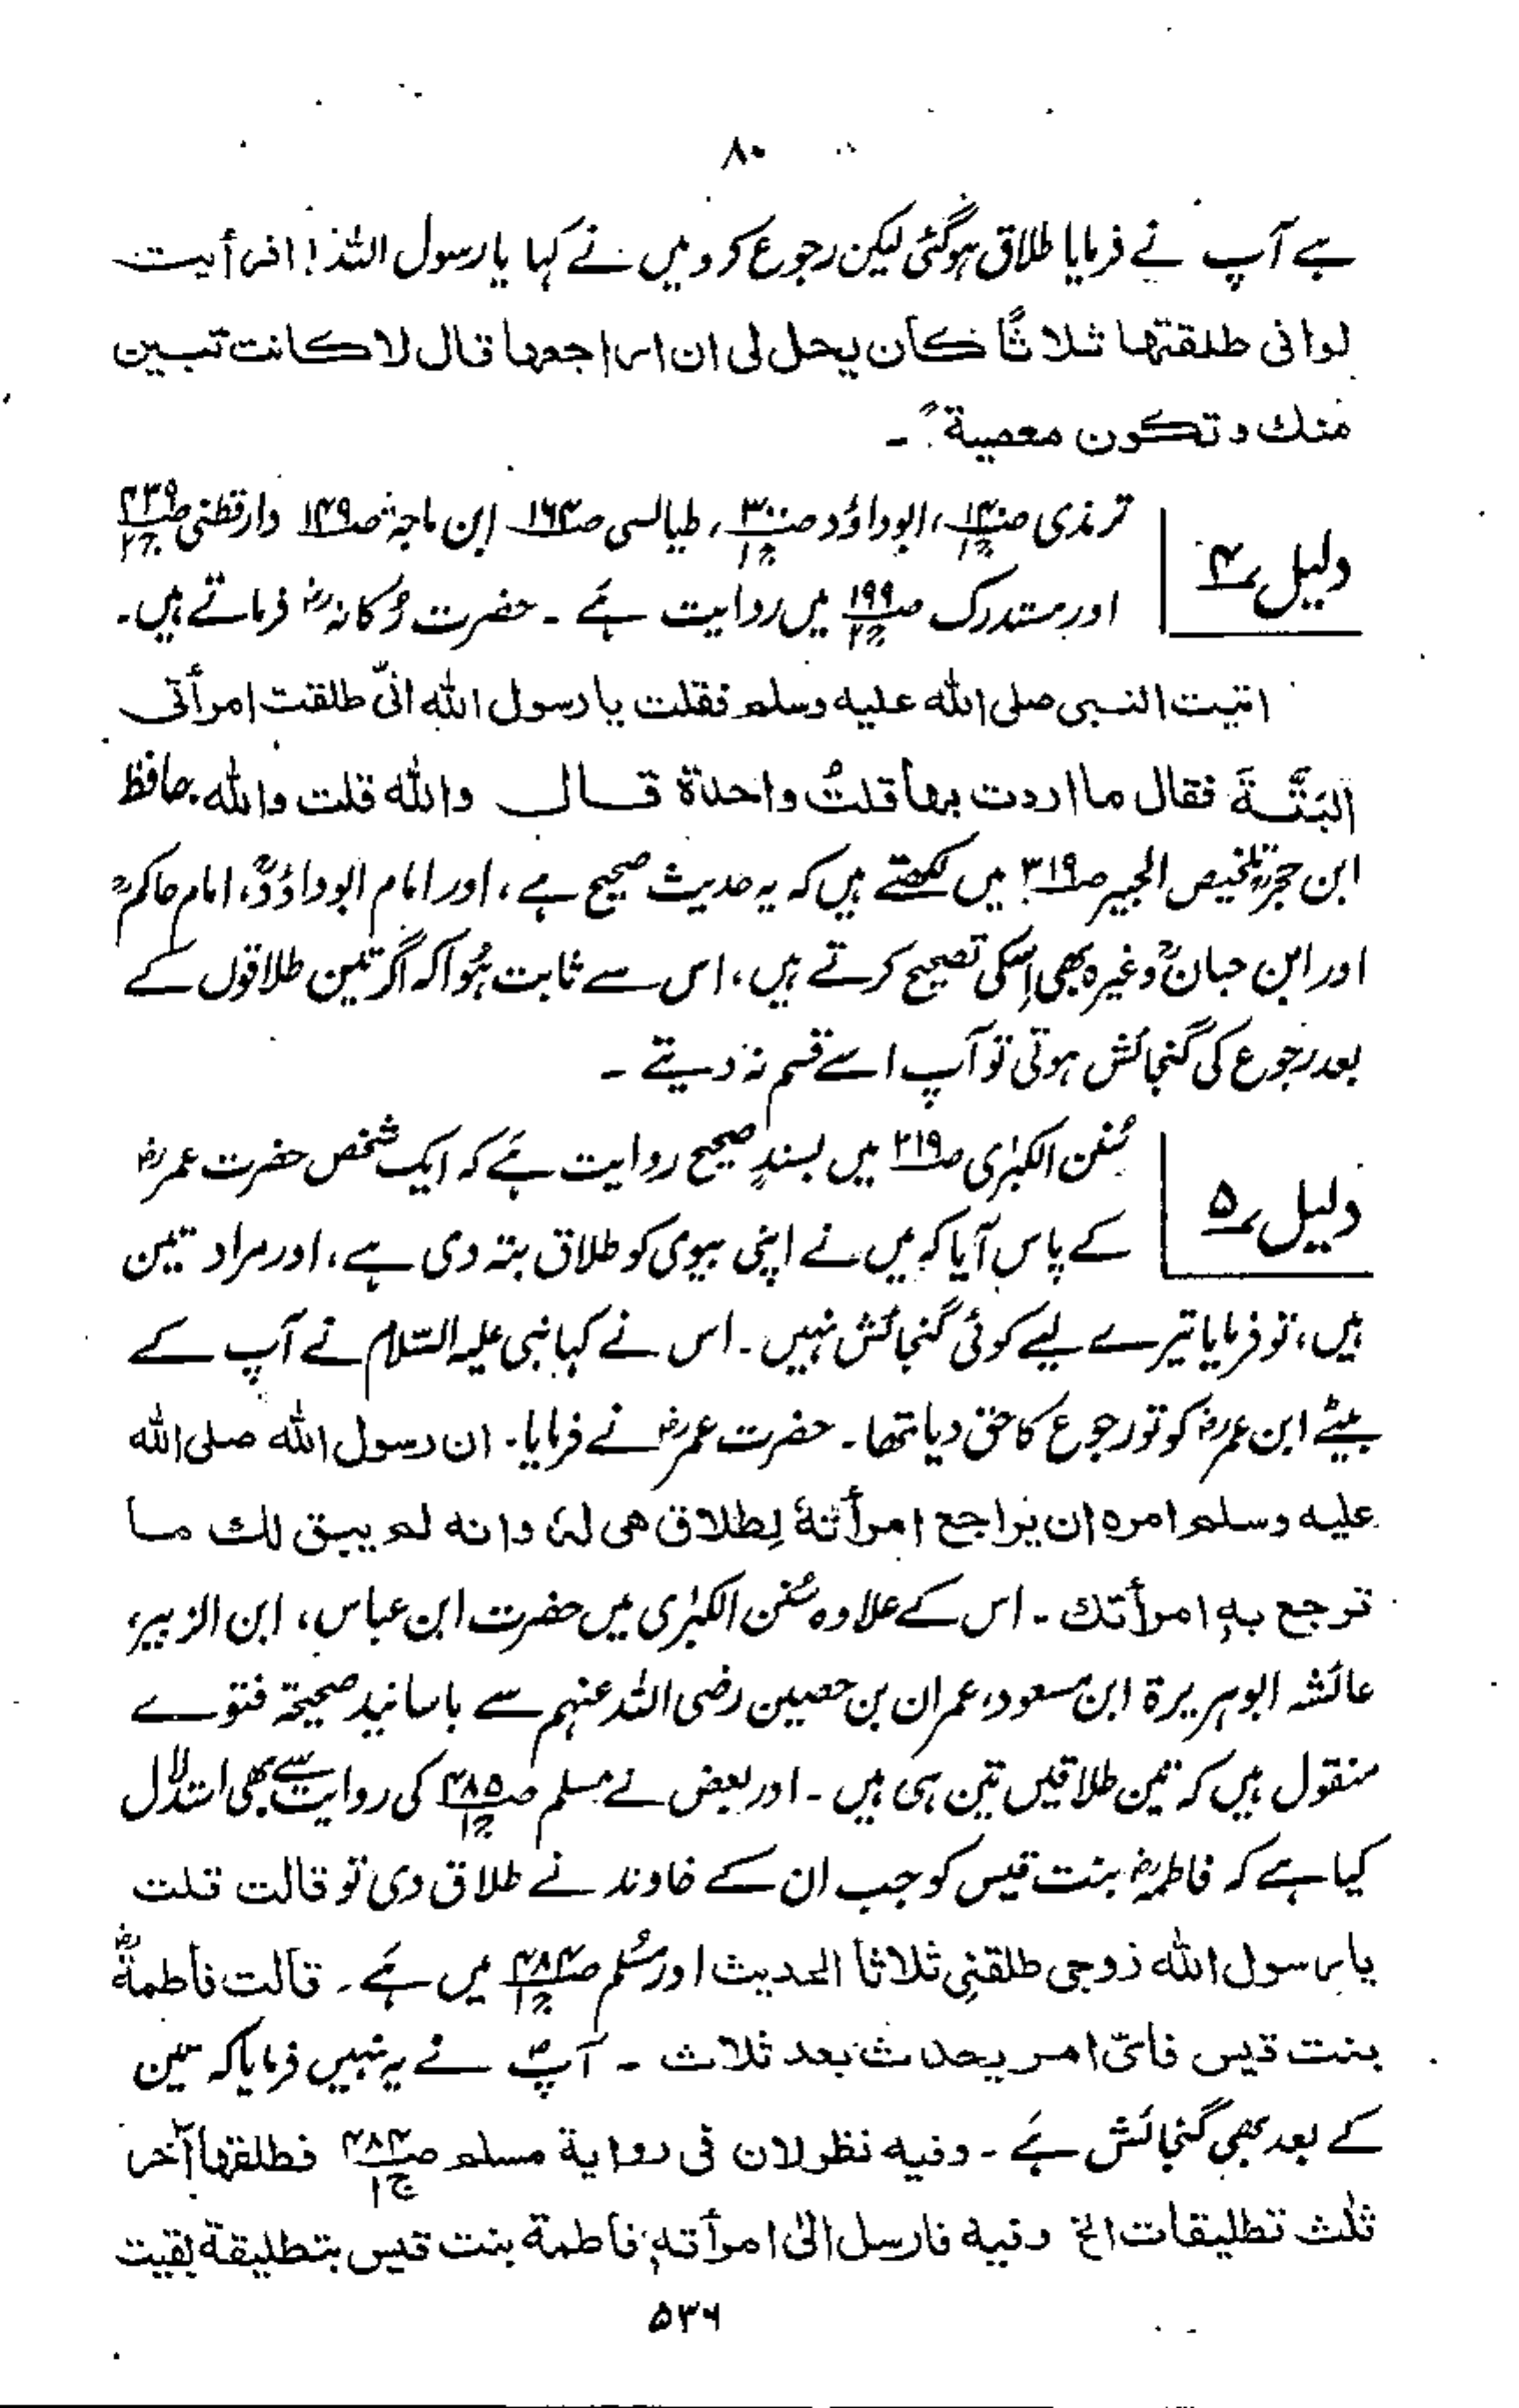 ۸۰
ہے آپ نے فرمایا طلاق ہوگئی لیکن رجوع کرو میں نے کہا یا رسول اللہ! افرأیت
لوانی طلقتها ثلاثًا کان یحل لی ان اراجعها قال لا کانت تبین
منك وتکون معصیة۔
دلیل ۴
ترمذی ص۱۴۰ ج۱، ابوداؤد ص۳۰۰ ج۱، طیالسی ص۱۶۴ ابن ماجة ص۱۴۹ دارقطنی ص۴۳۹ ج۲
اور مستدرک ص۱۹۹ ج۲ میں روایت ہے۔ حضرت رُکانہؓ فرماتے ہیں۔
اتیت النبی صلی الله علیه وسلم فقلت یا رسول الله انیّ طلقت امرأتی
البَتَّةَ فقال ما اردت بها قلتُ واحدة قال والله قلت والله۔ حافظ
ابن حجرؒ تلخیص الحبیر ص۳۱۹ میں لکھتے ہیں کہ یہ حدیث صحیح ہے، اور امام ابوداؤدؒ، امام حاکمؒ
اور ابن حبانؒ وغیرہ بھی اسکی تصحیح کرتے ہیں، اس سے ثابت ہُوا کہ اگر تین طلاقوں کے
بعد رجوع کی گنجائش ہوتی تو آپ اسے قسم نہ دیتے۔
دلیل ۵
سُنن الکبرٰی ص۲۱۹ میں بسندِ صحیح روایت ہے کہ ایک شخص حضرت عمرؓ
کے پاس آیا کہ میں نے اپنی بیوی کو طلاق بتہ دی ہے، اور مراد تین
ہیں، تو فرمایا تیرے لیے کوئی گنجائش نہیں۔ اس نے کہا نبی علیہ السّلام نے آپ کے
بیٹے ابن عمرؓ کو تو رجوع کا حق دیا تھا۔ حضرت عمرؓ نے فرمایا۔ ان رسول الله صلی الله
علیه وسلم امره ان یراجع امرأتهٗ لِطلاق هی له وانه لم یبق لك ما
ترجع بهٖ امرأتك۔ اس کے علاوہ سُنن الکبرٰی میں حضرت ابن عباس، ابن الزبیر،
عائشہ ابوہریرة ابن مسعود، عمران بن حصین رضی اللہ عنہم سے باسانید صحیحۃ فتوے
منقول ہیں کہ تین طلاقیں تین ہی ہیں۔ اور بعض نے مسلم ص۴۸۵ ج۱ کی روایت سے بھی استدلال
کیا ہے کہ فاطمہؓ بنت قیس کو جب ان کے خاوند نے طلاق دی تو قالت قلت
یا رسول الله زوجی طلقنی ثلاثا الحدیث اور مُسلم ص۴۸۴ ج۱ میں ہے۔ قالت فاطمةؓ
بنت قیس فایّ امر یحدث بعد ثلاث۔ آپؐ نے یہ نہیں فرمایا کہ تین
کے بعد بھی گنجائش ہے۔ وفیه نظر لان فی روایة مسلم ص۴۸۴ ج۱ فطلقها آخر
ثلٰث تطلیقات الخ وفیه فارسل الیٰ امرأتهٖ فاطمة بنت قیس بتطلیقة بقیت
۵۳۶